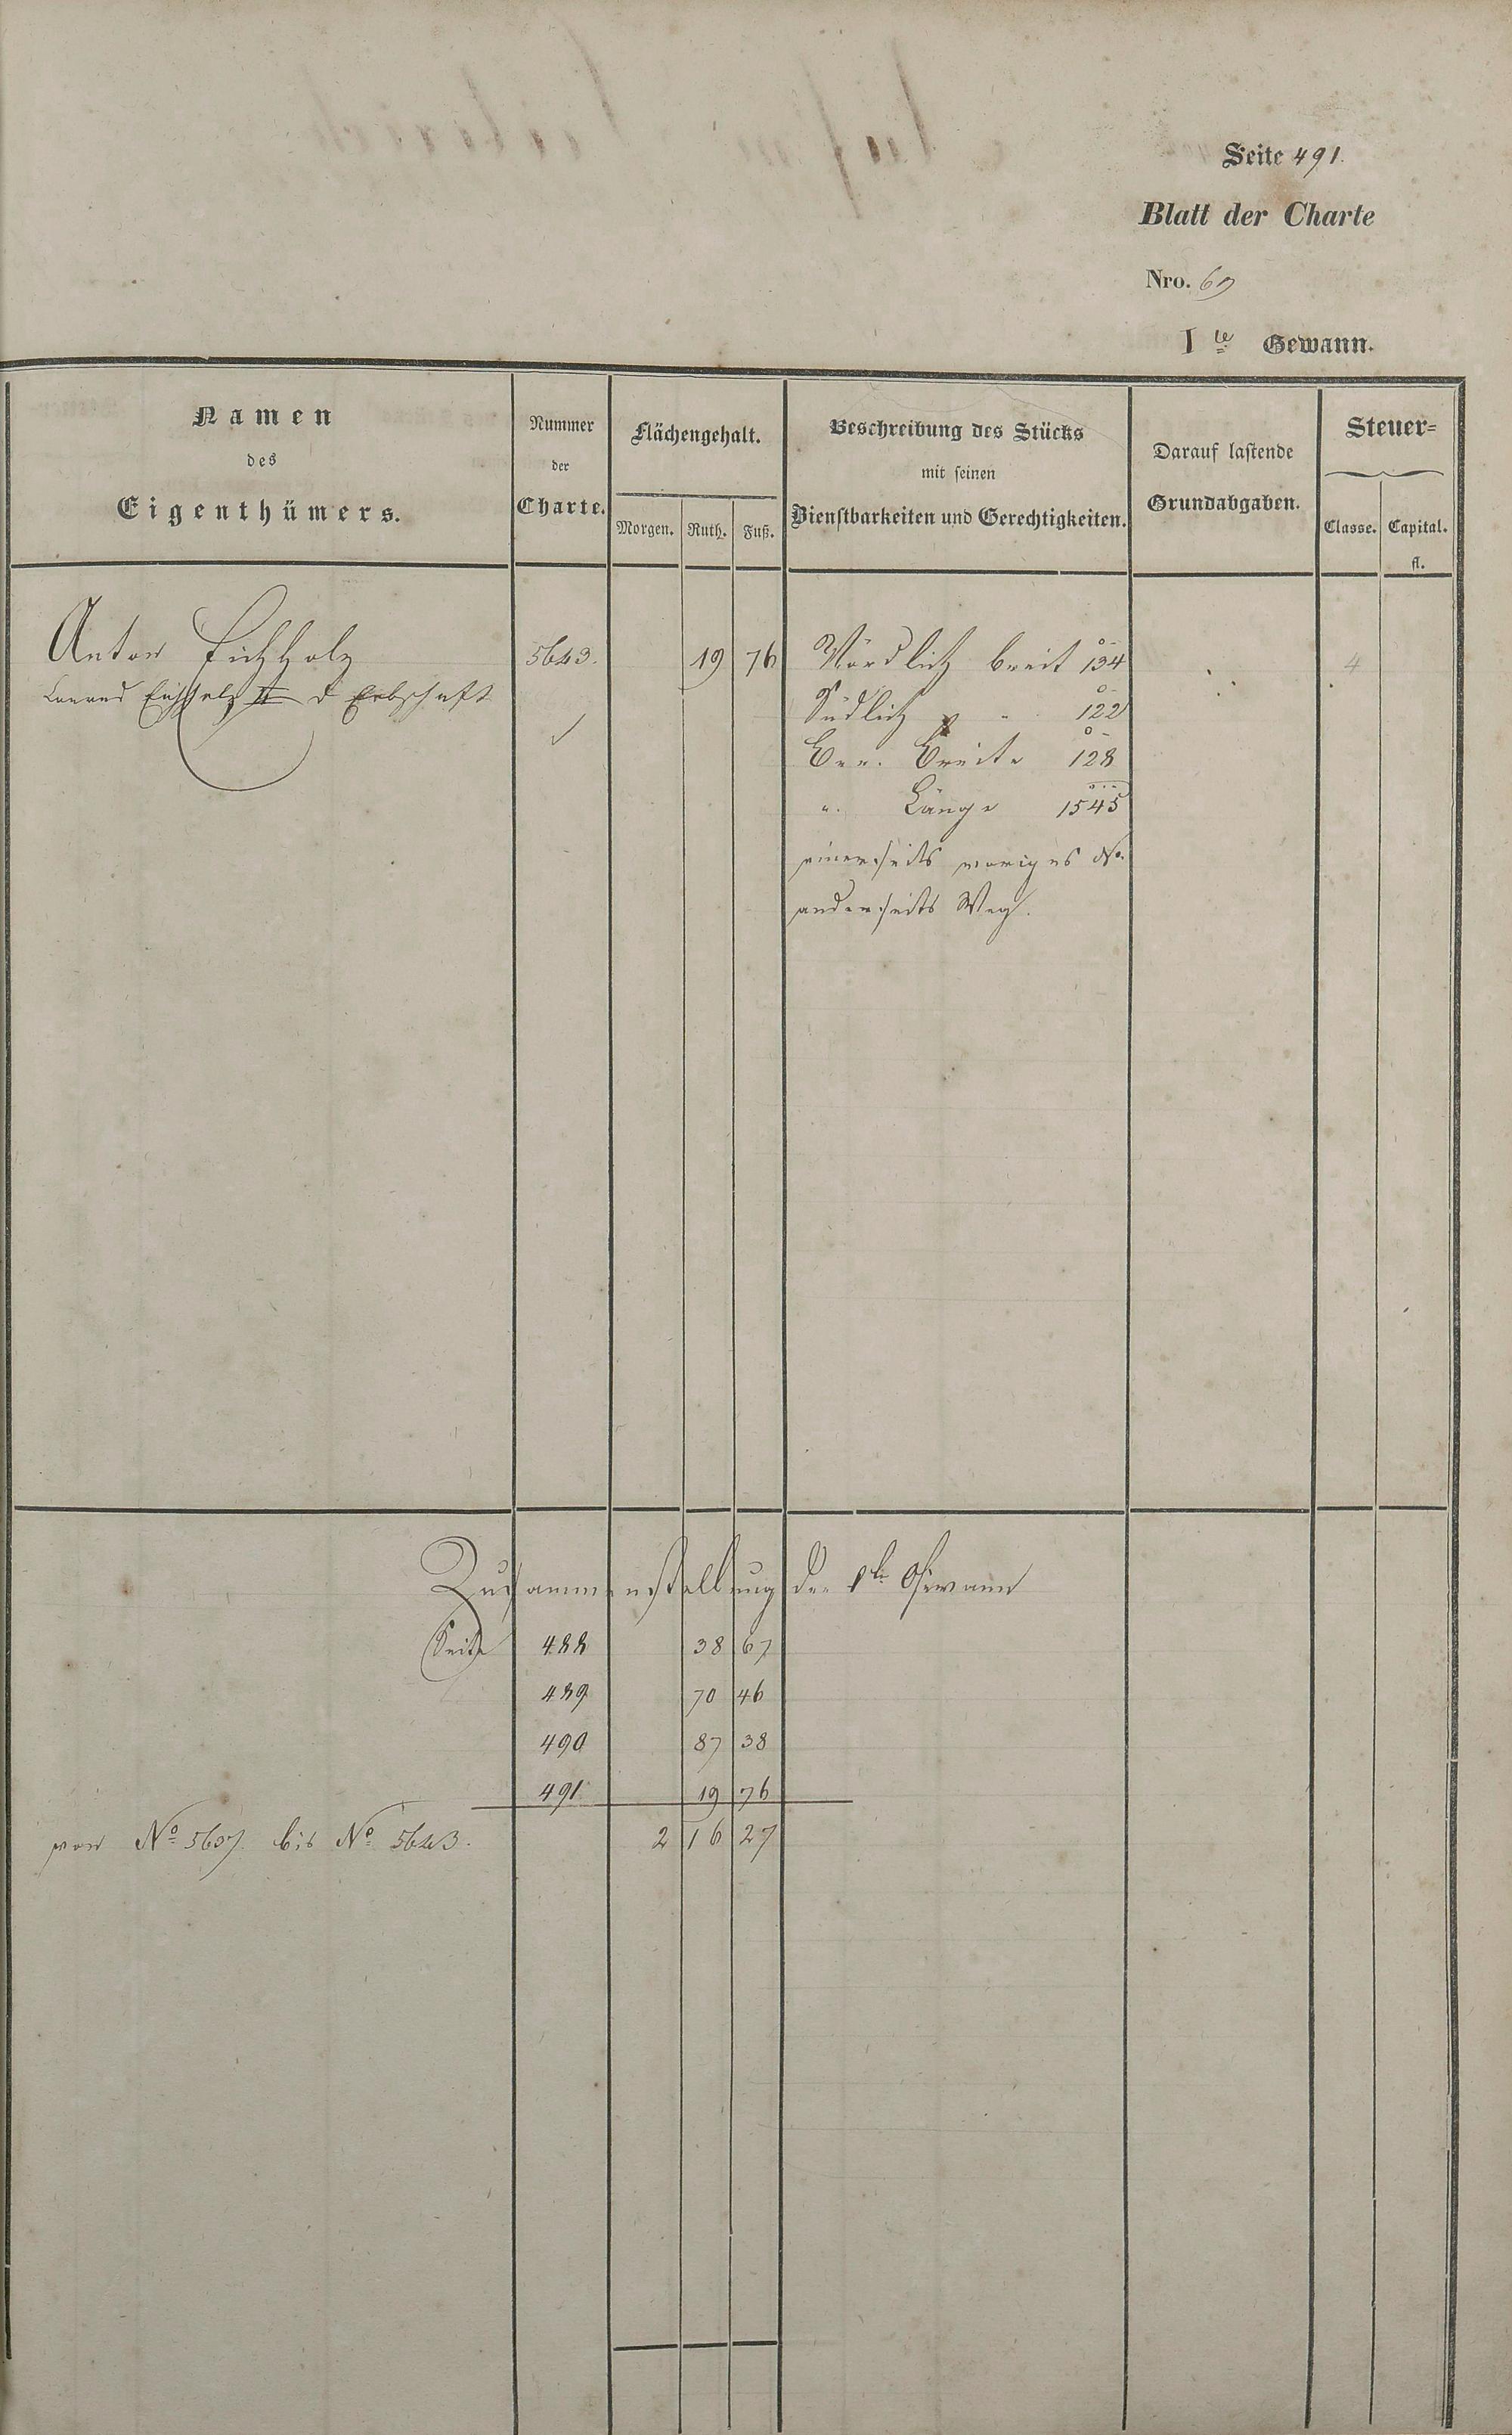 Seite 491.
Blatt der Charte
Nro. 69
I te Gewann.
Namen
des
Eigenthümers.
Nummer
der
Charte.
Flächengehalt.
Morgen. Ruth. Fuß.
Beschreibung des Stücks
mit seinen
Dienstbarkeiten und Gerechtigkeiten.
Darauf lastende
Grundabgaben.
Steuer=
Classe. Capital.
fl.
Anton Eichholz 5643. 19 76 Nördlich breit 134 4
Conrad Eichholz II d Erbschaft
Südlich " " 122
Ber. Breite 128
". Länge 1545
einerseits voriges No.
anderseits Weg.
Zusammenstellung der 1te Gewann
Seite 488 38 67
489 70 46
490 87 38
491 19 76
von No 5607. bis No 5643. 2 16 27